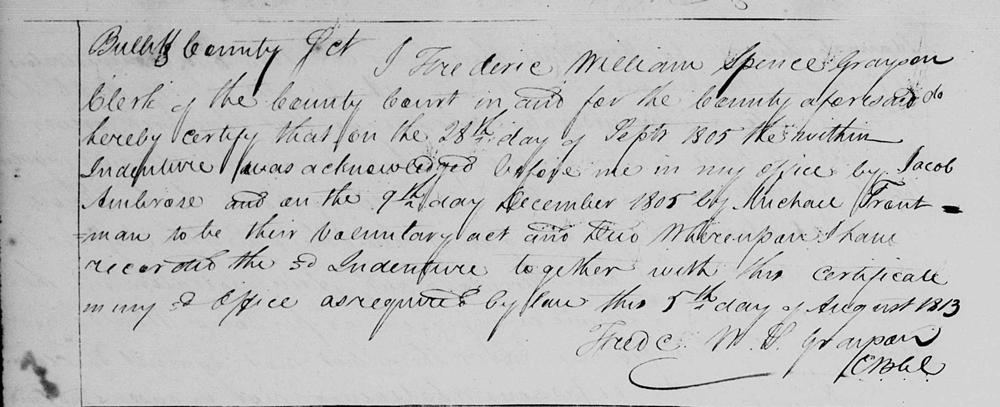 Bullitt County Sct I Frederic William Spence Grayson
Clerk of the County Court in and for the County aforesaid do
hereby certify that on the 28th day of Septr 1805 the within
Indenture was acknowledged before me in my office by Jacob
Ambrose and on the 9th day December 1805 by Michael Trout-
=man to be their Voluntary act and Deed Whereupon I have
recorded the sd Indenture together with this certificate
in my sd Office as required by law this 5th day of August 1813
Fredc. W. S. Grayson